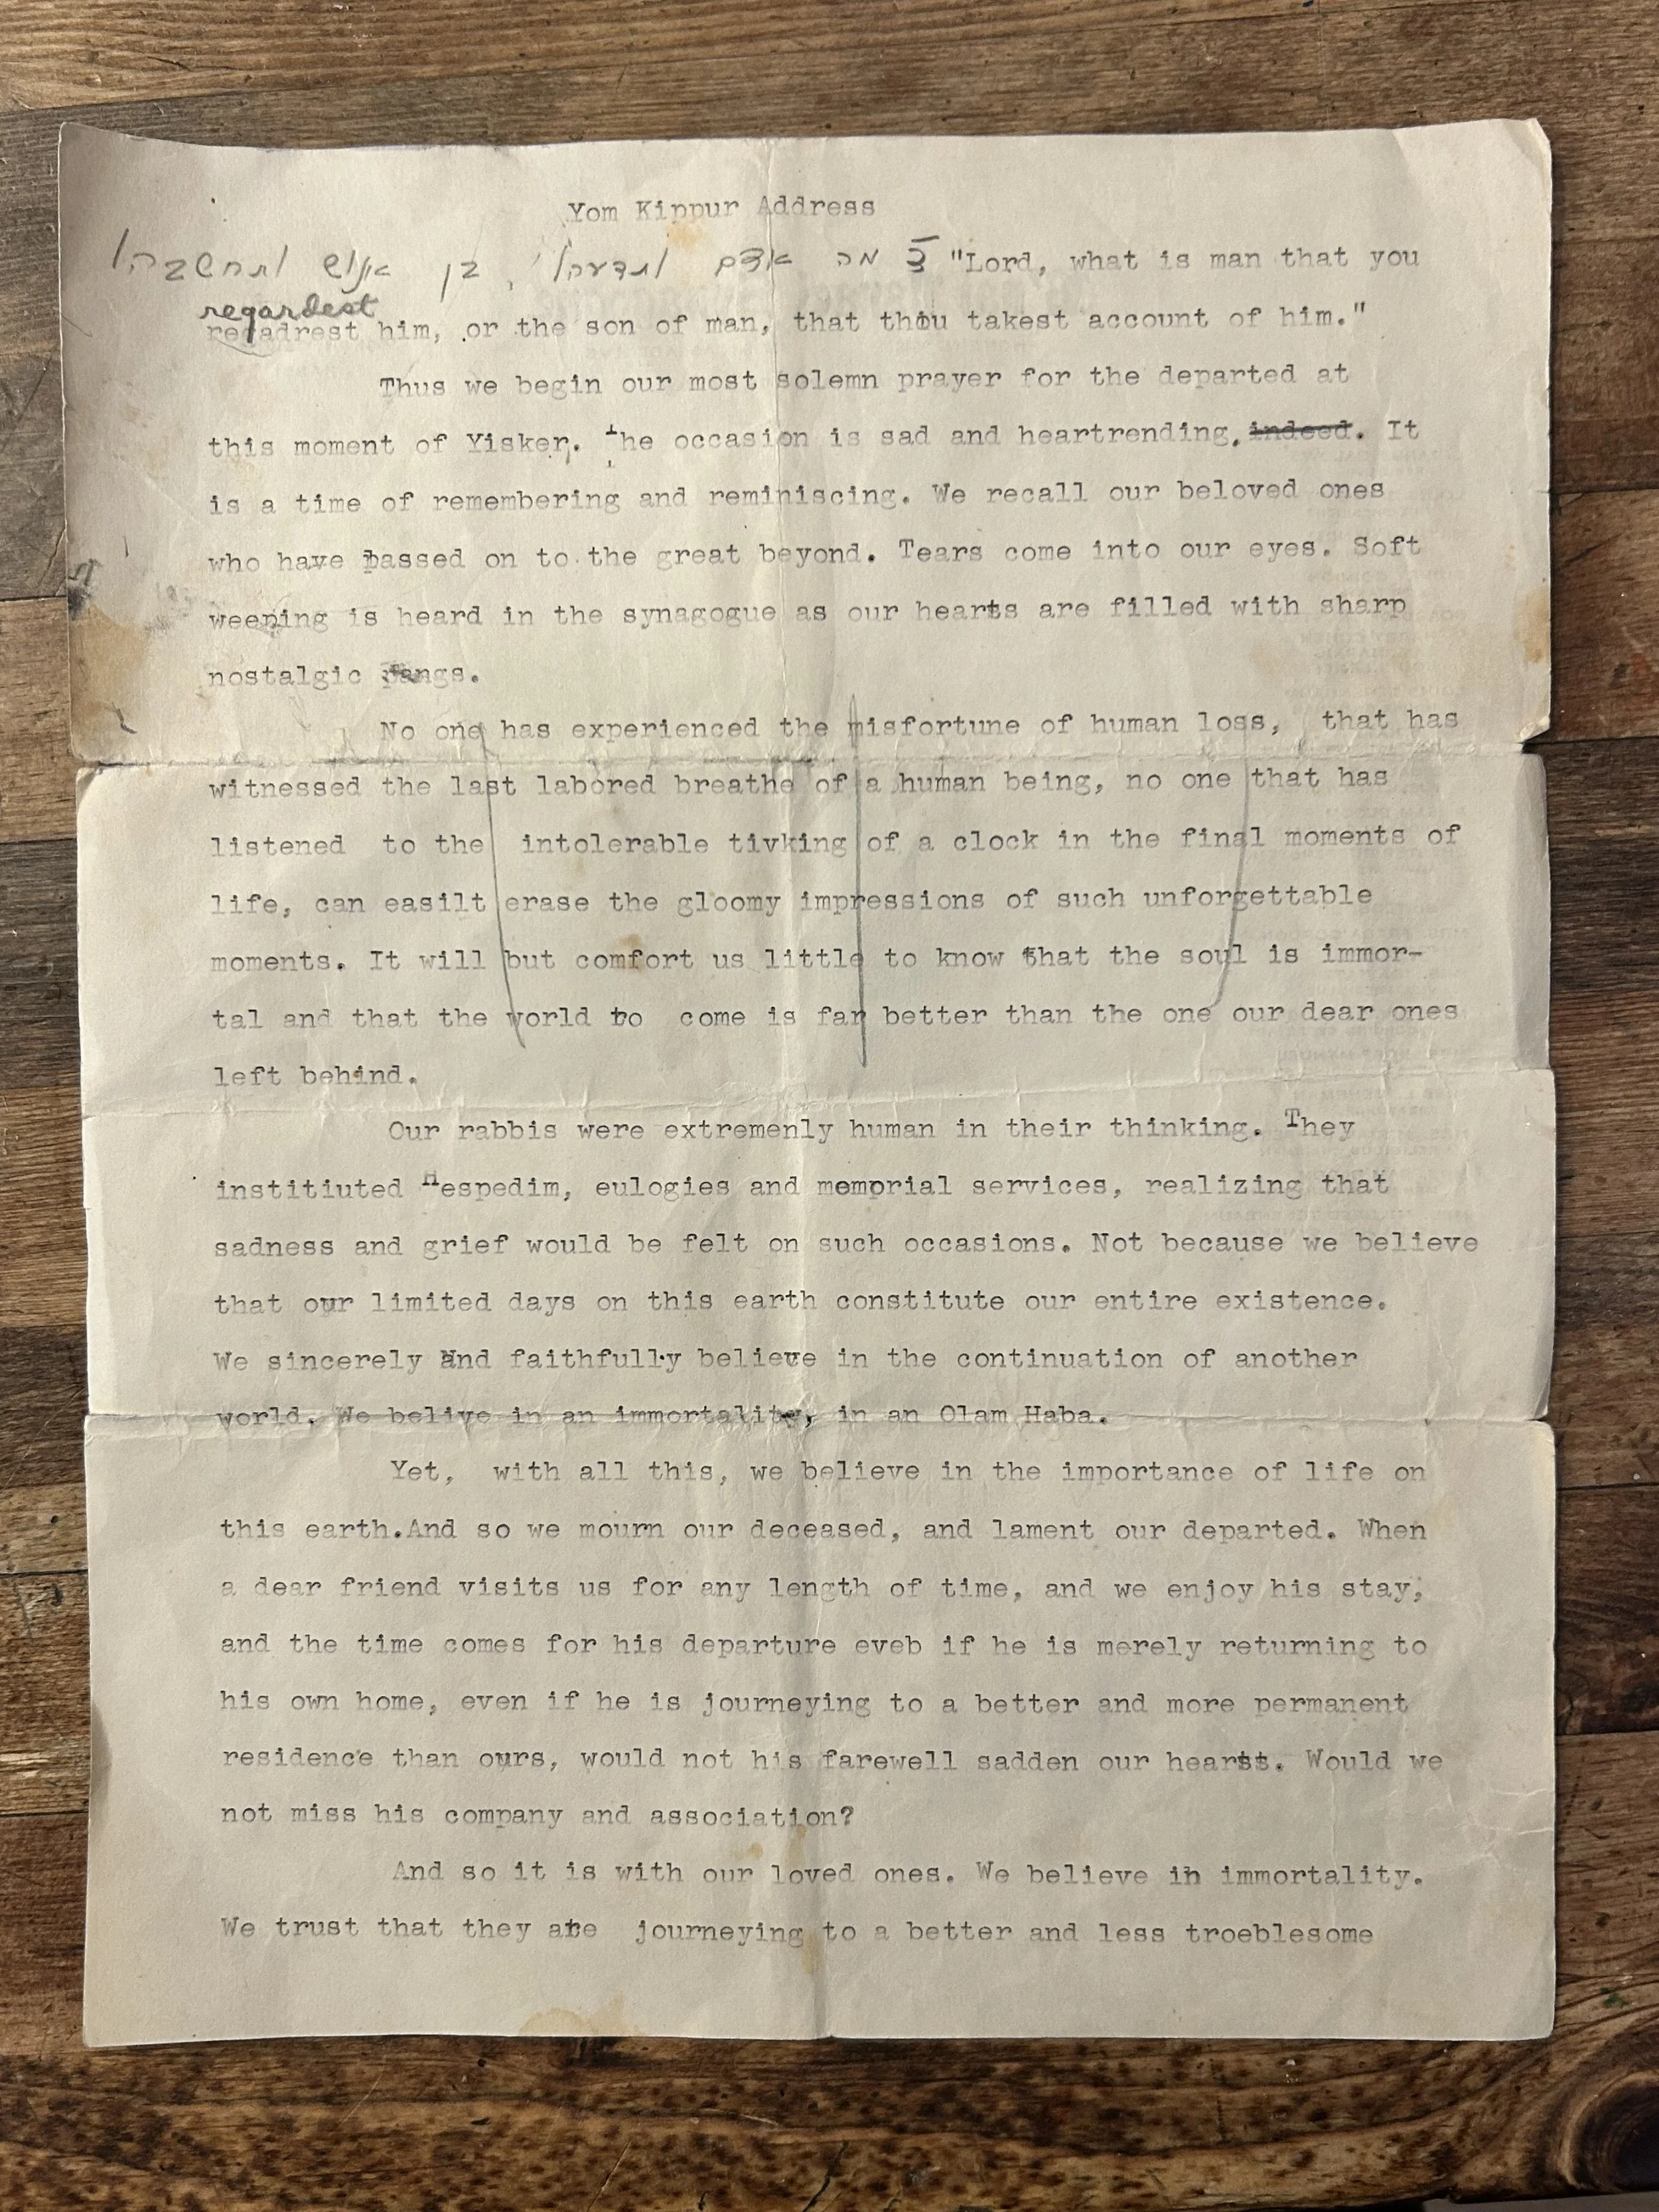 Yom Kippur Address
מה אדם ותדעהו, בן אנוש ותחשבהו "Lord, what is man that you
regardest
regadrest him, or the son of man, that thou takest account of him."
Thus we begin our most solemn prayer for the departed at
this moment of Yisker. The occasion is sad and heartrending, indeed. It
is a time of remembering and reminiscing. We recall our beloved ones
who have passed on to the great beyond. Tears come into our eyes. Soft
weeping is heard in the synagogue as our hearts are filled with sharp
nostalgic pangs.
No one has experienced the misfortune of human loss, that has
witnessed the last labored breathe of a human being, no one that has
listened to the intolerable tivking of a clock in the final moments of
life, can easilt erase the gloomy impressions of such unforgettable
moments. It will but comfort us little to know that the soul is immor-
tal and that the world to come is far better than the one our dear ones
left behind.
Our rabbis were extremenly human in their thinking. They
institiuted Hespedim, eulogies and memprial services, realizing that
sadness and grief would be felt on such occasions. Not because we believe
that our limited days on this earth constitute our entire existence.
We sincerely and faithfully believe in the continuation of another
world. We belive in an immortality, in an Olam Haba.
Yet, with all this, we believe in the importance of life on
this earth.And so we mourn our deceased, and lament our departed. When
a dear friend visits us for any length of time, and we enjoy his stay,
and the time comes for his departure eveb if he is merely returning to
his own home, even if he is journeying to a better and more permanent
residence than ours, would not his farewell sadden our hearts. Would we
not miss his company and association?
And so it is with our loved ones. We believe in immortality.
We trust that they are journeying to a better and less troeblesome